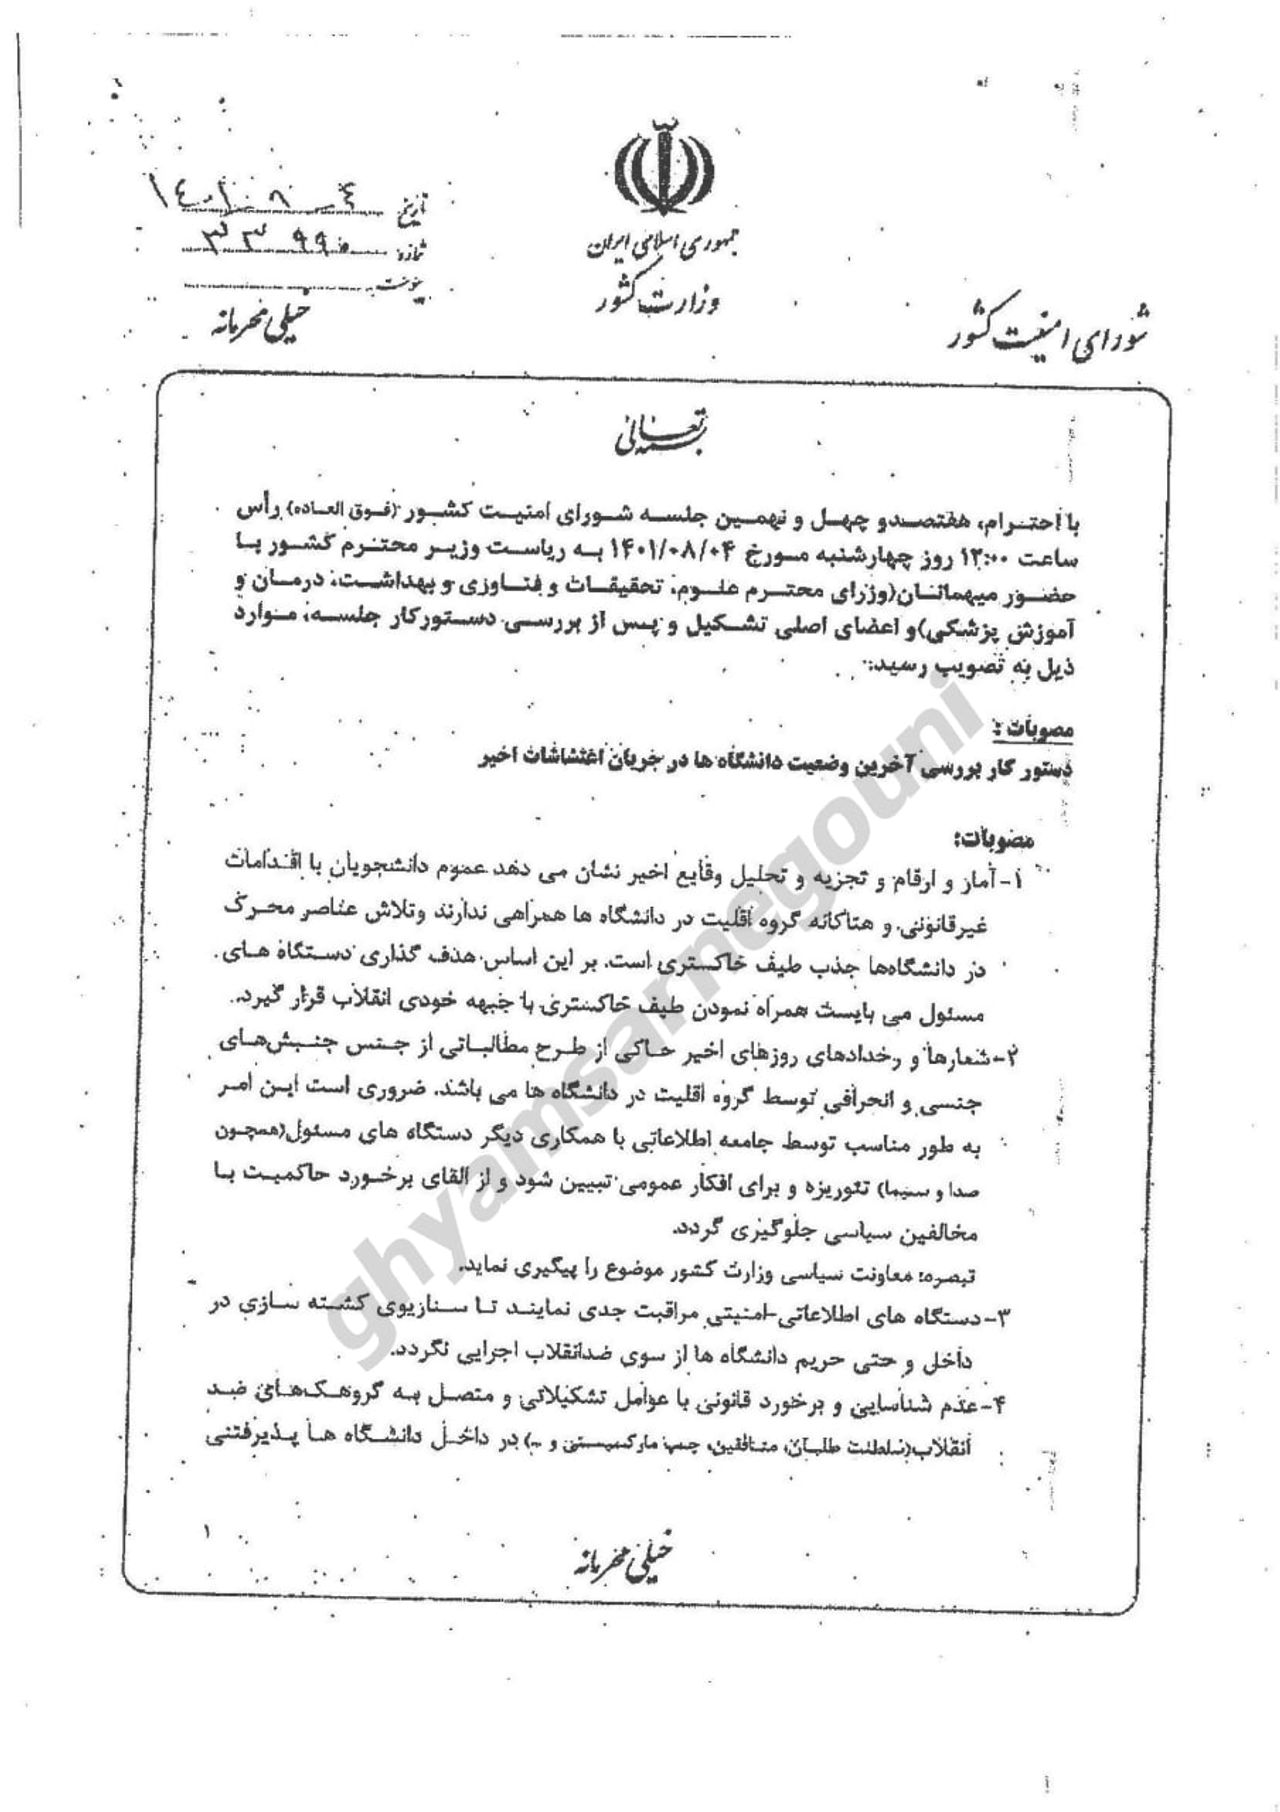 جمهوری اسلامی ایران
وزارت کشور
شورای امنیت کشور
تاریخ ۱۴۰۱-۸-۴
شماره ۳۳۹۹۰
پیوست
خیلی محرمانه
بسمه تعالی
با احترام، هفتصدو چهل و نهمین جلسه شورای امنیت کشور (فوق العاده) رأس
ساعت ۱۲:۰۰ روز چهارشنبه مورخ ۱۴۰۱/۰۸/۰۴ به ریاست وزیر محترم کشور با
حضور میهمانان(وزرای محترم علوم، تحقیقات و فناوری و بهداشت، درمان و
آموزش پزشکی)و اعضای اصلی تشکیل و پس از بررسی دستورکار جلسه، موارد
ذیل به تصویب رسید:
مصوبات :
دستور کار بررسی آخرین وضعیت دانشگاه ها در جریان اغتشاشات اخیر
مصوبات:
۱-آمار و ارقام و تجزیه و تحلیل وقایع اخیر نشان می دهد عموم دانشجویان با اقدامات
غیرقانونی و هتاکانه گروه اقلیت در دانشگاه ها همراهی ندارند وتلاش عناصر محرک
در دانشگاه‌ها جذب طیف خاکستری است. بر این اساس هدف گذاری دستگاه های
مسئول می بایست همراه نمودن طیف خاکستری با جبهه خودی انقلاب قرار گیرد.
۲-شعارها و رخدادهای روزهای اخیر حاکی از طرح مطالباتی از جنس جنبش‌های
جنسی و انحرافی توسط گروه اقلیت در دانشگاه ها می باشد. ضروری است این امر
به طور مناسب توسط جامعه اطلاعاتی با همکاری دیگر دستگاه های مسئول(همچون
صدا و سیما) تئوریزه و برای افکار عمومی تبیین شود و از القای برخورد حاکمیت با
مخالفین سیاسی جلوگیری گردد.
تبصره: معاونت سیاسی وزارت کشور موضوع را پیگیری نماید.
۳-دستگاه های اطلاعاتی-امنیتی مراقبت جدی نمایند تا سناریوی کشته سازی در
داخل و حتی حریم دانشگاه ها از سوی ضدانقلاب اجرایی نگردد.
۴-عدم شناسایی و برخورد قانونی با عوامل تشکیلاتی و متصل به گروهک‌های ضد
انقلاب(سلطنت طلبان، منافقین، چپ مارکسیستی و ...) در داخل دانشگاه ها پذیرفتنی
۱
خیلی محرمانه
ghyamsarnegouni